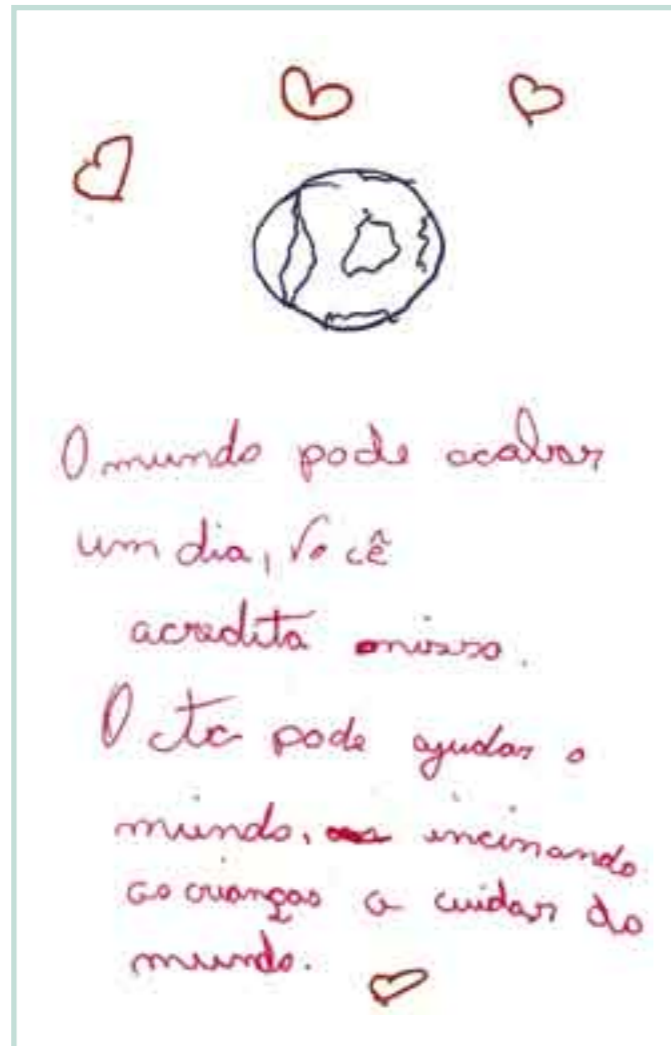 O mundo pode acabar
um dia, Você
acredita nisso.
O ctc pode ajudar o
mundo, incinando
as crianças a cuidar do
mundo.